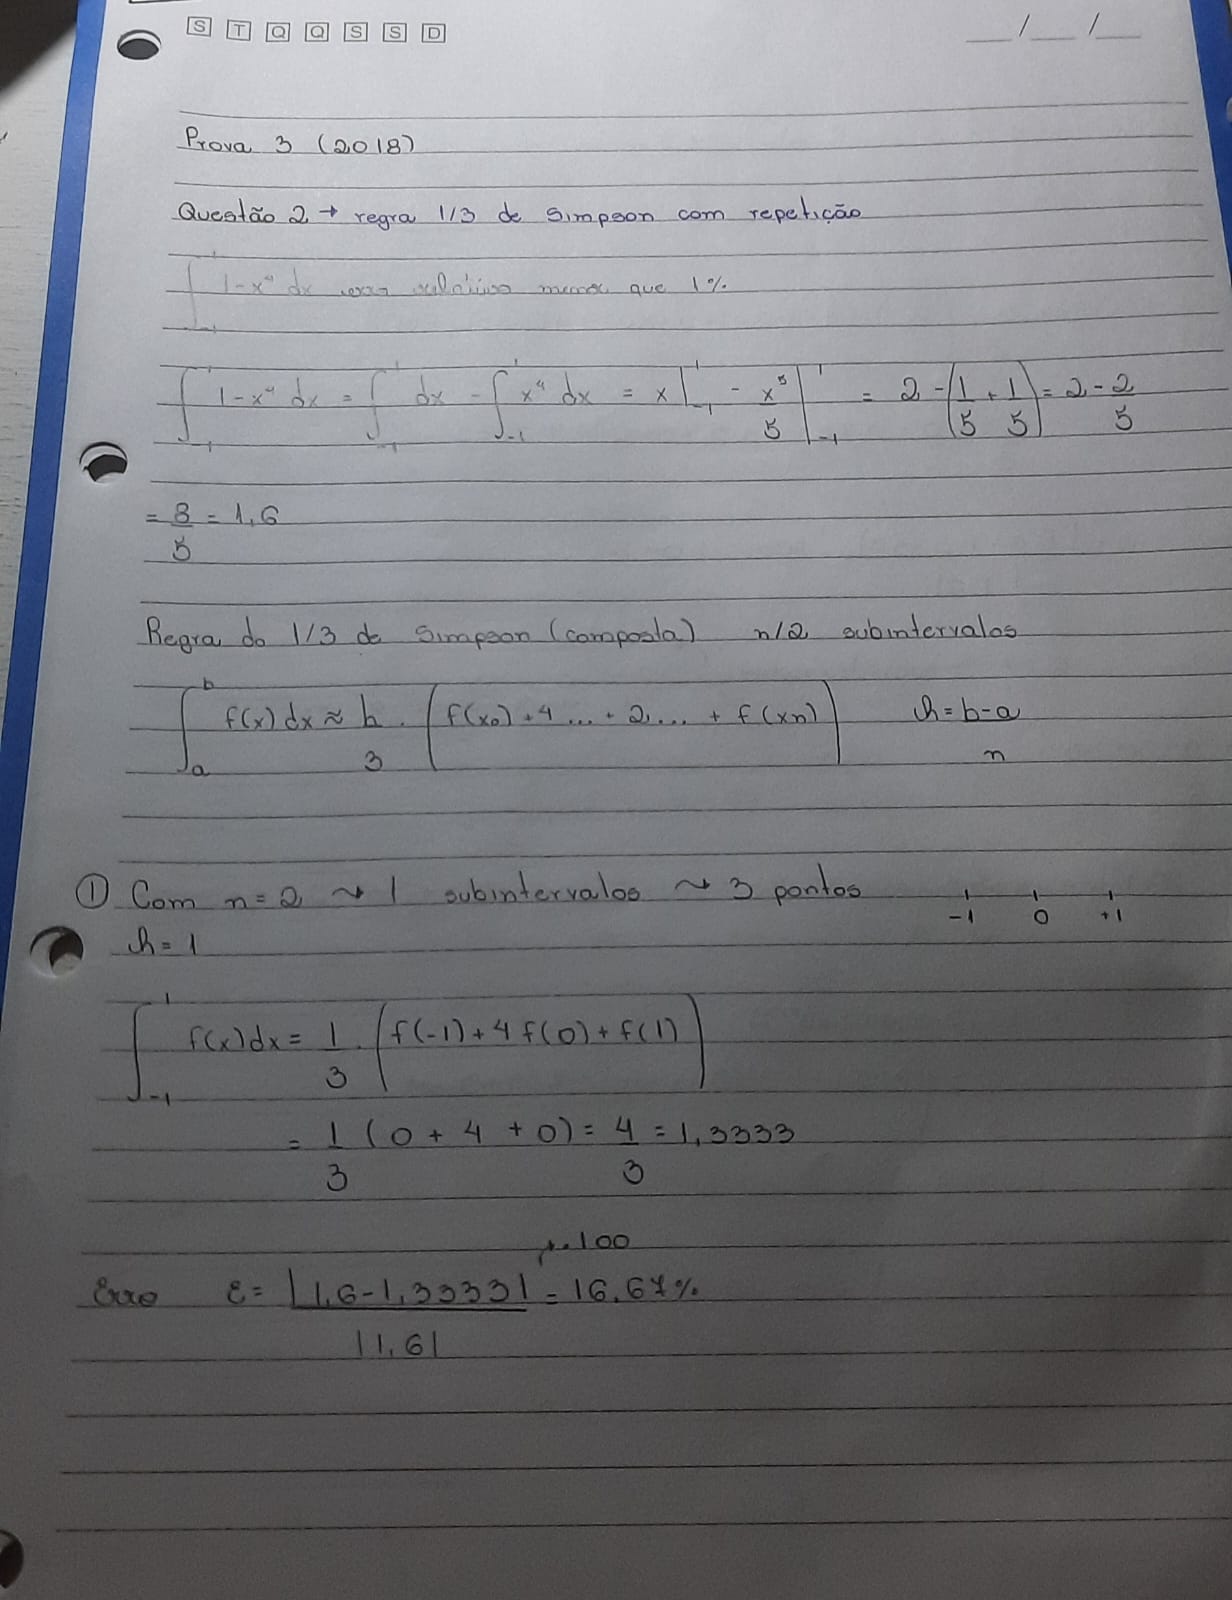 S T Q Q S S D __/__/__
Prova 3 (2018)
Questão 2 → regra 1/3 de Simpson com repetição
∫₋₁¹ 1-x⁴ dx erro relativo menor que 1%
∫₋₁¹ 1-x⁴ dx = ∫₋₁¹ dx - ∫₋₁¹ x⁴ dx = x |₋₁¹ - x⁵/5 |₋₁¹ = 2 - (1/5 + 1/5) = 2 - 2/5
= 8/5 = 1,6
Regra do 1/3 de Simpson (composta) n/2 subintervalos
∫ₐᵇ f(x) dx ≈ h/3 · (f(x₀) + 4 ... + 2 ... + f(xn)) h = b-a/n
① Com n=2 ⤳ 1 subintervalos ⤳ 3 pontos -1 0 +1
h = 1
∫₋₁¹ f(x)dx = 1/3 · (f(-1) + 4 f(0) + f(1))
= 1/3 (0 + 4 + 0) = 4/3 = 1,3333
Erro ε = |1,6-1,3333|/|1,6| · 100 = 16,67%